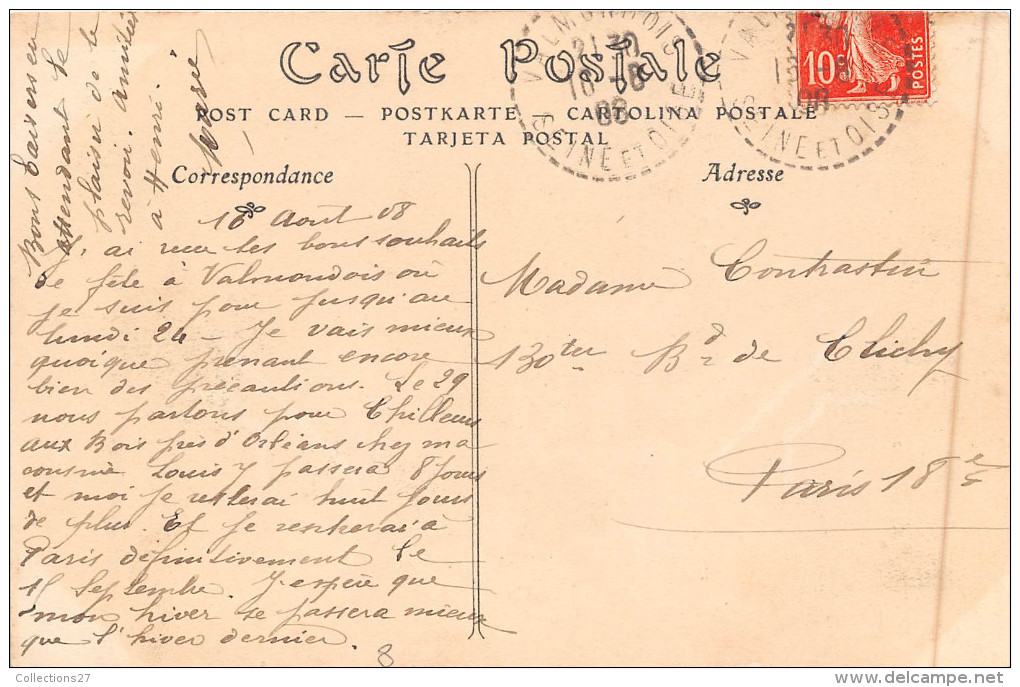 Carte Postale
POST CARD — POSTKARTE — CARTOLINA POSTALE
TARJETA POSTAL
Correspondance
Adresse
VALMONDOIS
21 30
16 -8
08
SEINE ET OISE
10c
POSTES
16 Aout 08
J'ai recu tes bons souhaits
de fête à Valmondois où
je suis pour jusqu'au
lundi 24 - Je vais mieux
quoique prenant encore
bien des précautions. Le 29
nous partons pour Chilleurs
aux Bois près d'Orléans chez ma
cousine Louis y passera 8 jours
et moi je resterai huit jours
de plus. Et je rentrerai à
Paris définitivement le
15 Septembre. J'espère que
mon hiver se passera mieux
que l'hiver dernier.
Bons baisers en
attendant le
plaisir de te
revoir. amitiés
à Henri.
Madame Contrastin
130 ter Bd de Clichy
Paris 18e
8
Collections27